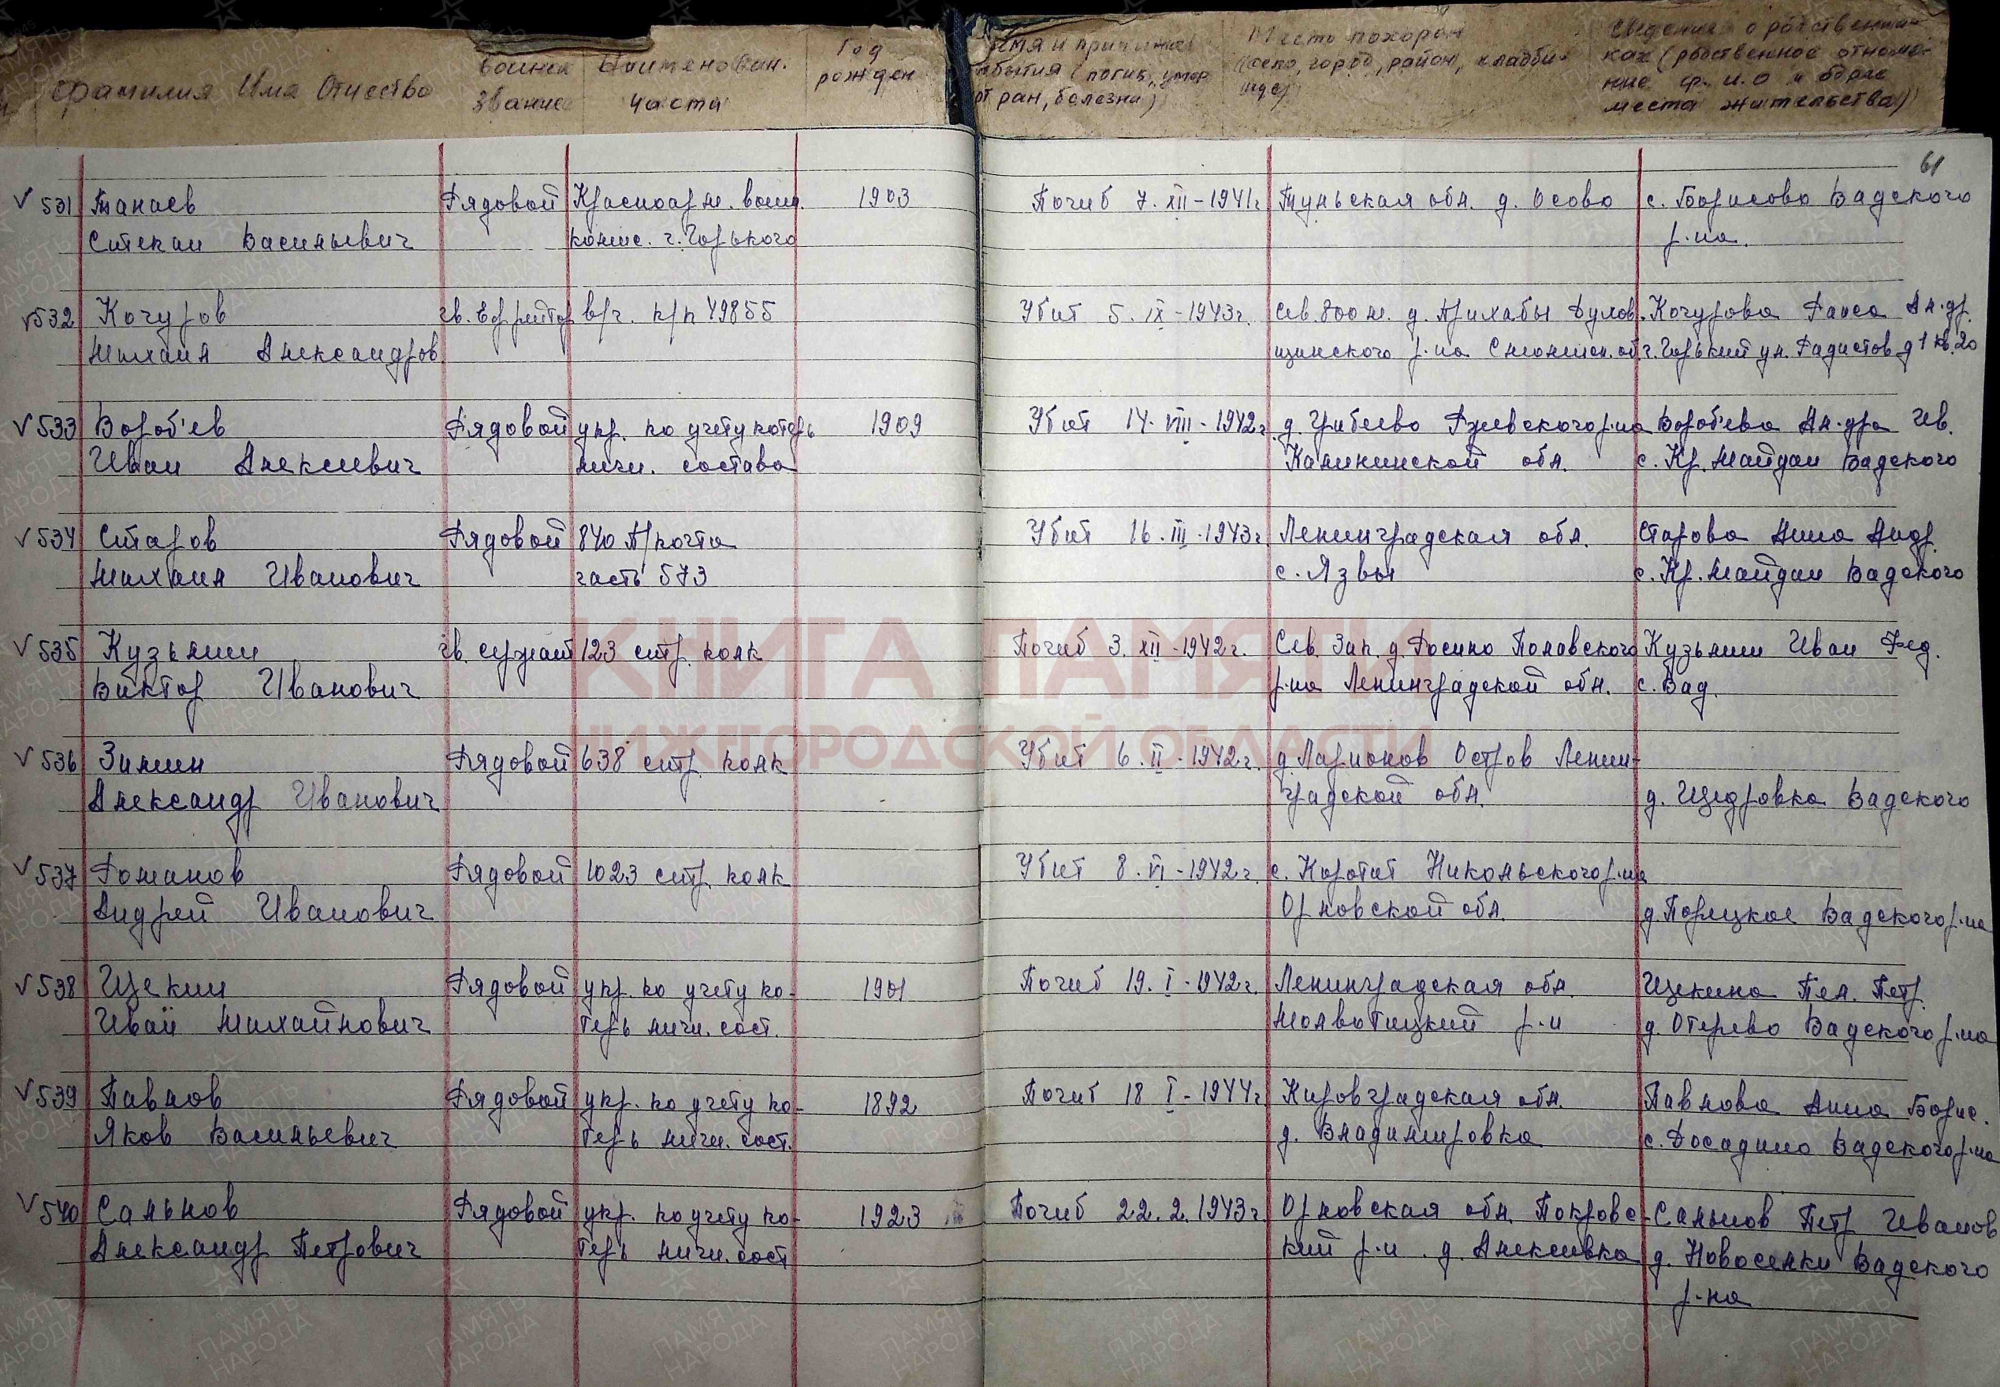 Фамилия Имя Отчество
воинск звание
Наименован. части
Год рожден
Время и причина выбытия (погиб, умер от ран, болезни)
Место похорон (село, город, район, кладбище)
Сведения о родственниках (родственное отношение ф.и.о и адрес места жительства)
61
531 Танаев Рядовой Красноарм. воин. 1903 Погиб 7.XII-1941г Тульская обл. д. Осово с. Борисово Вадского
Степан Васильевич комис. г. Горького р-на.
532 Кочуров гв. Ефрейтор в/ч. п/п 49855 Убит 5.IX-1943г. Сев. 800 м. д. Прихабы Духов- Кочурова Раиса Ал-др.
Михаил Александров щинского р-на Смоленск. об. г. Горький ул. Радистов д 1 кв. 20
533 Вороб'ев Рядовой упр. по учету потерь 1909 Убит 14.VIII-1942г. д. Грибеево Ржевского р-на Вороб'ева Ал-дра Ив.
Иван Алексеевич личн. состава Калининской обл. с. Кр. Майдан Вадского
534 Старов Рядовой 840 А/почта Убит 16.III-1943г. Ленинградская обл. Старова Анна Андр.
Михаил Иванович часть 573 с. Язвы с. Кр. Майдан Вадского
535 Кузьмин гв. сержант 123 стр. полк Погиб 3.XII-1942г. Сев. Зап. д. Росино Полавского Кузьмин Иван Фед.
Виктор Иванович р-на Ленинградской обл. с. Вад.
КНИГА ПАМЯТИ
НИЖЕГОРОДСКОЙ ОБЛАСТИ
536 Зимин Рядовой 638 стр. полк Убит 6.II-1942г. д. Ларионов Остров Ленин-
Александр Иванович градской обл. д. Щедровка Вадского
537 Романов Рядовой 1023 стр. полк Убит 8.VI-1942г. с. Коротит Никольского р-на
Андрей Иванович Орловской обл. д. Порецкое Вадского р-на
538 Щекин Рядовой упр. по учету по- 1901 Погиб 19.I-1942г. Ленинградская обл. Щекина Пел. Петр.
Иван Михайлович терь личн. сост. Молвотицкий р-н д. Отерево Вадского р-на
539 Павлов Рядовой упр. по учету по- 1892 Погиб 18 I-1944г Кировградская обл. Павлова Анна Борис.
Яков Васильевич терь личн. сост. д. Владимировка с. Досадино Вадского р-на
540 Сальнов Рядовой упр. по учету по- 1923 Погиб 22.2.1943г. Орловская обл. Покровс- Сальнов Петр Иванов
Александр Петрович терь личн. сост кий р-н д. Алексеевка д. Новоселки Вадского
р-на